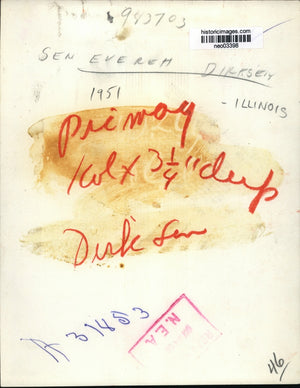 943703
historicimages.com
neo03398
SEN EVEREtt DIRKSEN
1951
- ILLINOIS
Primay
1col x 3 1/4" deep
Dirksen
A 31853
N.E.A.
46